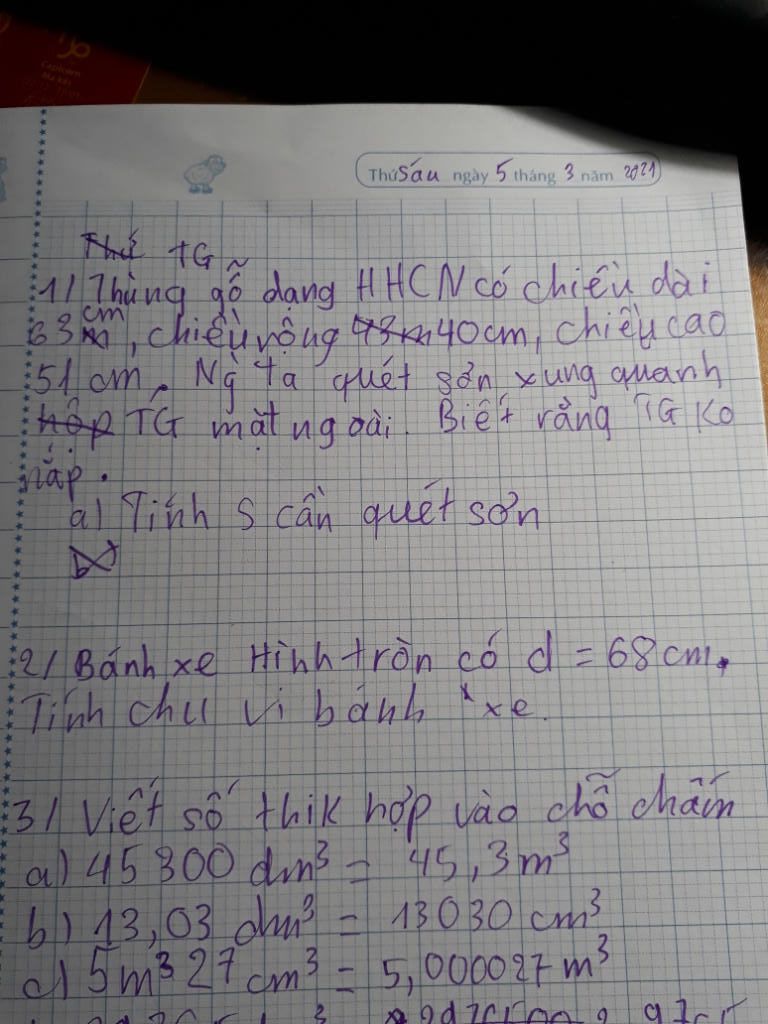 Capricorn
Ma Kết
Thứ Sáu ngày 5 tháng 3 năm 2021
Thứ TG
1/ Thùng gỗ dạng HHCN có chiều dài
63 cm, chiều rộng 40cm, chiều cao
51 cm. Ng ta quét sơn xung quanh
hộp TG mặt ngoài. Biết rằng TG Ko
nắp.
a) Tính S cần quét sơn
2/ Bánh xe Hình tròn có d = 68 cm.
Tính chu vi bánh xe.
3/ Viết số thik hợp vào chỗ chấm
a) 45300 dm³ = 45,3m³
b) 13,03 dm³ = 13030 cm³
c) 5m³ 27 cm³ = 5,000027 m³